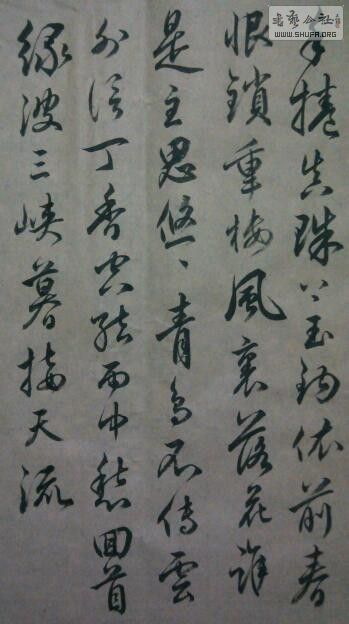 書藝公社
WWW.SHUFA.ORG
手捲真珠上玉鈎依前春
恨鎖重樓風裏落花誰
是主思悠、青鳥不傳雲
外信丁香空結雨中愁囬首
緑波三峽暮接天流